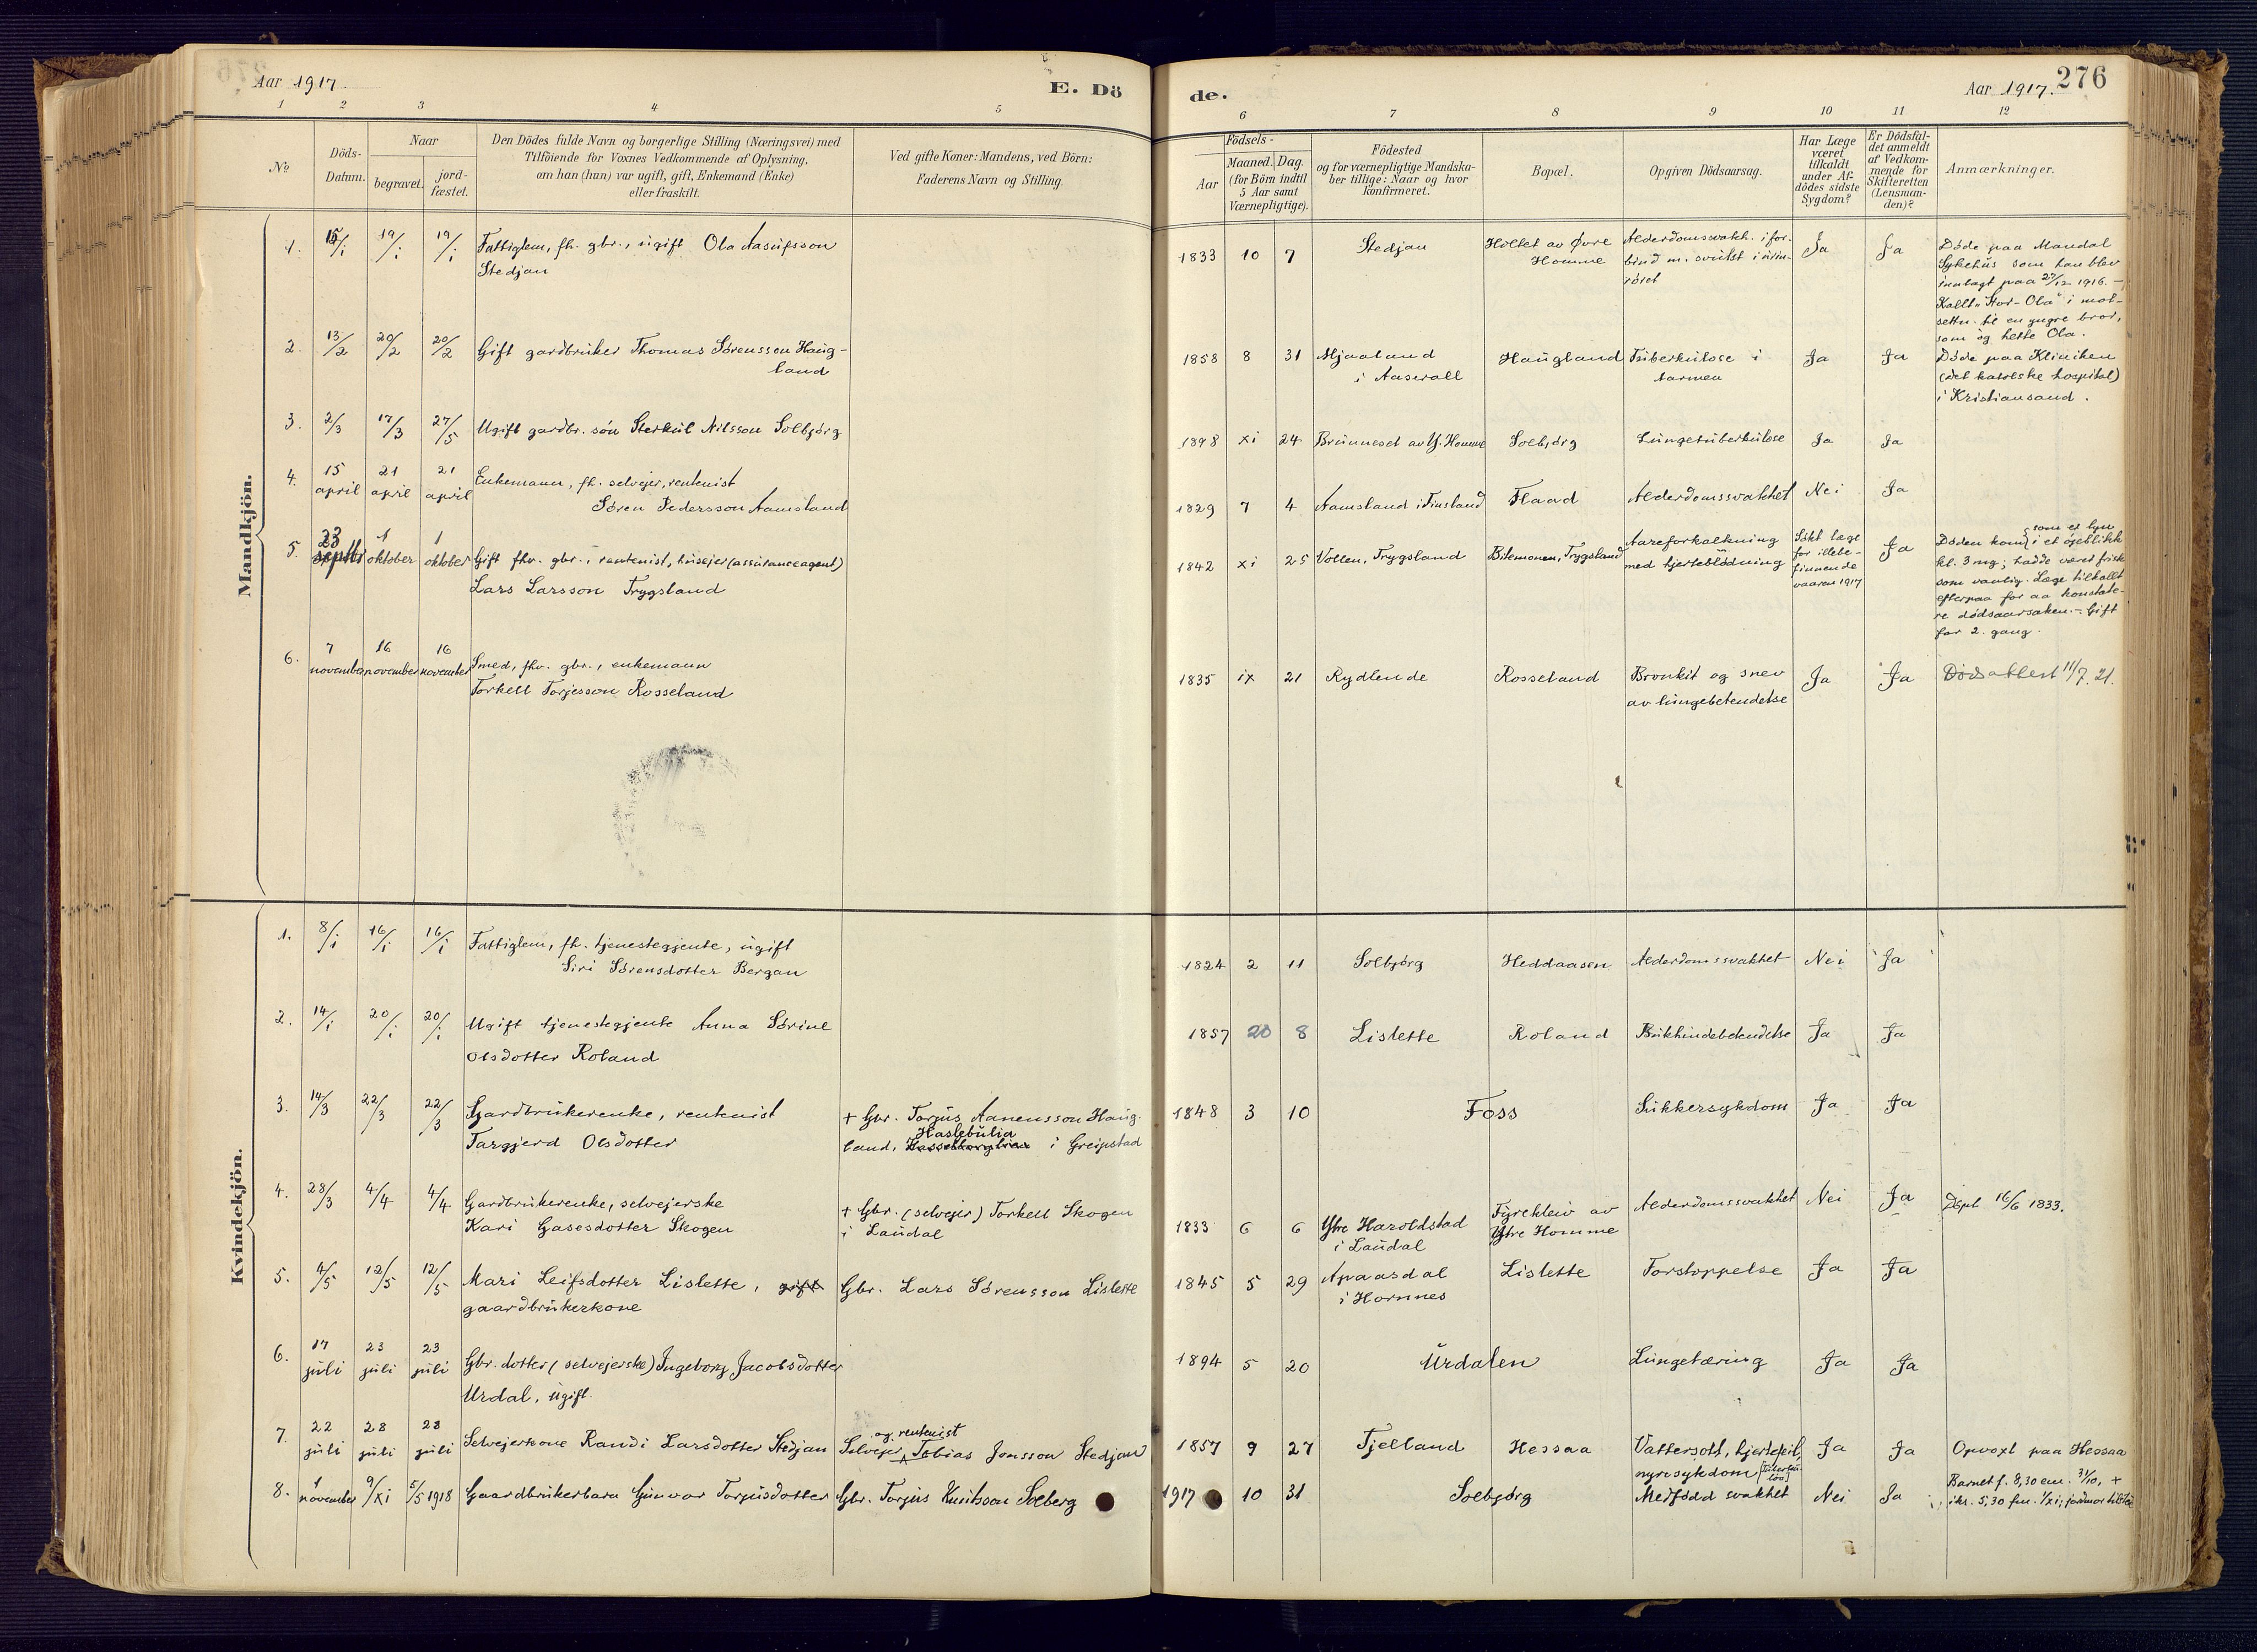 Aar 1917.
E. Dö
1 2 3 4 5
No
Döds-
Datum.
Naar
begravet.
jord-
fæstet.
Den Dödes fulde Navn og borgerlige Stilling (Næringsvei) med
Tilföiende for Voxnes Vedkommende af Oplysning.
om han (hun) var ugift, gift, Enkemand (Enke)
eller fraskilt.
Ved gifte Koner: Mandens, ved Börn:
Faderens Navn og Stilling.
Mandkjön.
1. 15/1 19/1 19/1 Fattiglem, fh. gbr., ugift Ola Aasulfsson
Stedjan
2. 13/2 20/2 20/2 Gift gardbruker Thomas Sørensson Haug-
land
3. 2/3 17/3 27/5 Ugift gardbr. søn Sterkul Nilsson Solbjørg
4. 15 april 21 april 21 april Enkemann, fh. selvejer, rentenist
Søren Pedersson Aamsland
5. 23 septbr 1 oktober 1 oktober Gift fhv. gbr., rentenist, husejer (assuranceagent)
Lars Larsson Trygsland
6. 7 november 16 november 16 november Smed, fhv. gbr., enkemann
Torkell Torjesson Rosseland
Kvindekjön.
1. 8/1 16/1 16/1 Fattiglem, fh. tjenestegjente, ugift
Siri Sørensdotter Bergan
2. 14/1 20/1 20/1 Ugift tjenestegjente Anna Sørine
Olsdotter Roland
3. 14/3 22/3 22/3 Gardbrukerenke, rentenist + Gbr. Torjus Aanensson Haug-
Targjerd Olsdotter land, Haslebulia i Greipstad
4. 28/3 4/4 4/4 Gardbrukerenke, selvejerske + Gbr. (selvejer) Torkell Skogen
Kari Gasesdotter Skogen i Laudal
5. 4/5 12/5 12/5 Mari Leifsdotter Lislette, gift Gbr. Lars Sørensson Lislette
gaardbrukerkone
6. 17 juli 23 juli 23 juli Gbr. dotter (selvejerske) Ingeborg Jacobsdotter
Urdal, ugift.
7. 22 juli 28 juli 28 juli Selvejerkone Randi Larsdotter Stedjan Selvejer og rentenist Tobias Jonsson Stedjan
8. 1 november 9/XI 5/5 1918 Gaardbrukerbarn Gunvor Torjusdotter Gbr. Torjus Knutsson Solberg
de.
Aar 1917. 276
6 7 8 9 10 11 12
Födsels-
Aar
Maaned. Dag.
(for Börn indtil
5 Aar samt
Værnepligtige).
Födested
og for værnepligtige Mandska-
ber tillige: Naar og hvor
konfirmeret.
Bopæl.
Opgiven Dödsaarsag.
Har Læge
været
tilkaldt
under Af-
dödes sidste
Sygdom?
Er Dödsfal-
det anmeldt
af Vedkom-
mende for
Skifteretten
(Lensman-
den)?
Anmærkninger.
1833 10 7 Stedjan Holtet av Øvre
Homme Alderdomssvakh. i for-
bind m. svulst i urin-
røret Ja Ja Døde paa Mandal
Sykehus som han blev
inntagt paa 27/12 1916. –
Kallt „Stor-Ola“ i mot-
setn. til en yngre bror,
som òg hette Ola.
1858 8 31 Mjaaland
i Aaserall Haugland Tuberkulose i
tarmen Ja Ja Døde paa Kliniken
(det katolske hospital)
i Kristiansand.
1898 XI 24 Brunneset av Y. Homme Solbjørg Lungetuberkulose Ja Ja
1829 7 4 Aamsland i Finsland Flaad Alderdomssvakhet Nei Ja
1842 XI 25 Vollen, Trygsland Bilemonen, Trygsland Aareforkalkning
med hjerteblødning Søkt læge
for illebe-
finnende
vaaren 1917 Ja Døden kom som et lyn i et øjeblikk
kl. 3 mg; hadde været frisk
som vanlig. Læge tilkallt
efterpaa for aa konstate-
re dødsaarsaken. – Gift
for 2. gang.
1835 IX 21 Rydlende Rosseland Bronkit og snev
av lungebetendelse Ja Ja Dødsattest 11/7. 21.
1824 2 11 Solbjørg Heddaasen Alderdomssvakhet Nei Ja
1857 20 8 Lislette Roland Bukhindebetendelse Ja Ja
1848 3 10 Foss Sukkersykdom Ja Ja
1833 6 6 Ytre Haroldstad
i Laudal Fyrekleiv av
Ytre Homme Alderdomssvakhet Nei Ja Døpt 16/6 1833.
1845 5 29 Apaasdal
i Hornnes Lislette Forstoppelse Ja Ja
1894 5 20 Urdalen Lungetæring Ja Ja
1857 9 27 Fjelland Hessaa Vattersott, hjertefeil,
nyresykdom Ja Ja Opvoxt paa Hessaa
1917 10 31 Solbjørg Medfødd svakhet Nei Ja Barnet f. 8,30 em. 31/10, +
kl. 5,30 fm. 1/XI; jordmor